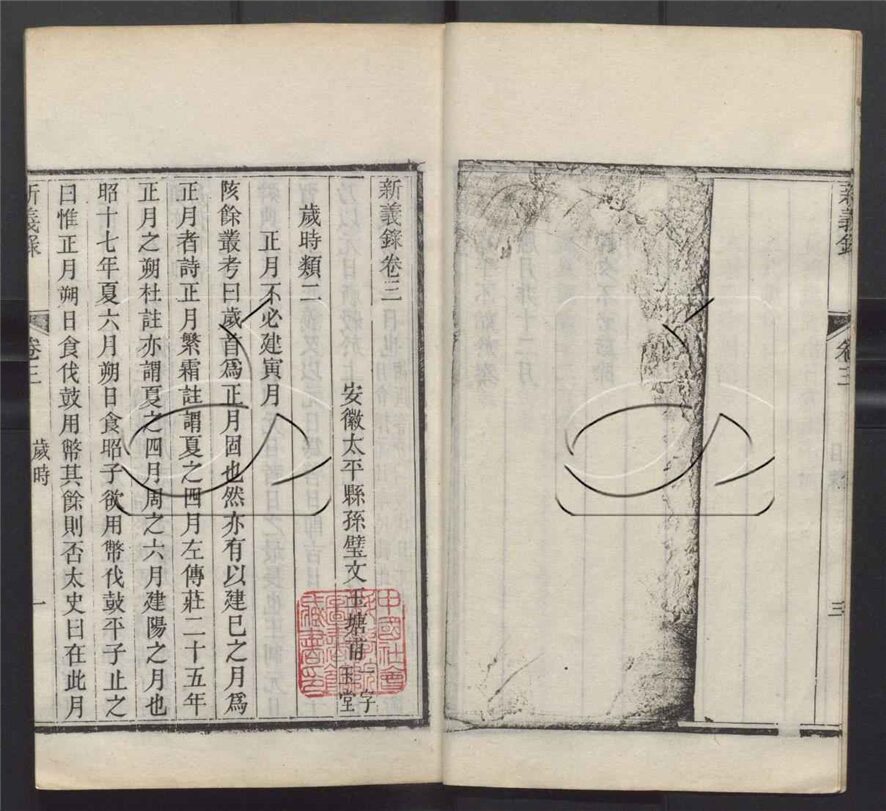 新義錄
卷三
三
新義錄卷三
安徽太平縣孫璧文玉塘甫 字玉堂
歲時類二
正月不必建寅月
陔餘叢考曰歲首爲正月固也然亦有以建巳之月爲
正月者詩正月繁霜註謂夏之四月左傳莊二十五年
正月之朔杜註亦謂夏之四月周之六月建陽之月也
昭十七年夏六月朔日食昭子欲用幣伐鼓平子止之
曰惟正月朔日食伐鼓用幣其餘則否太史曰在此月
新義錄
卷三
歲時
一